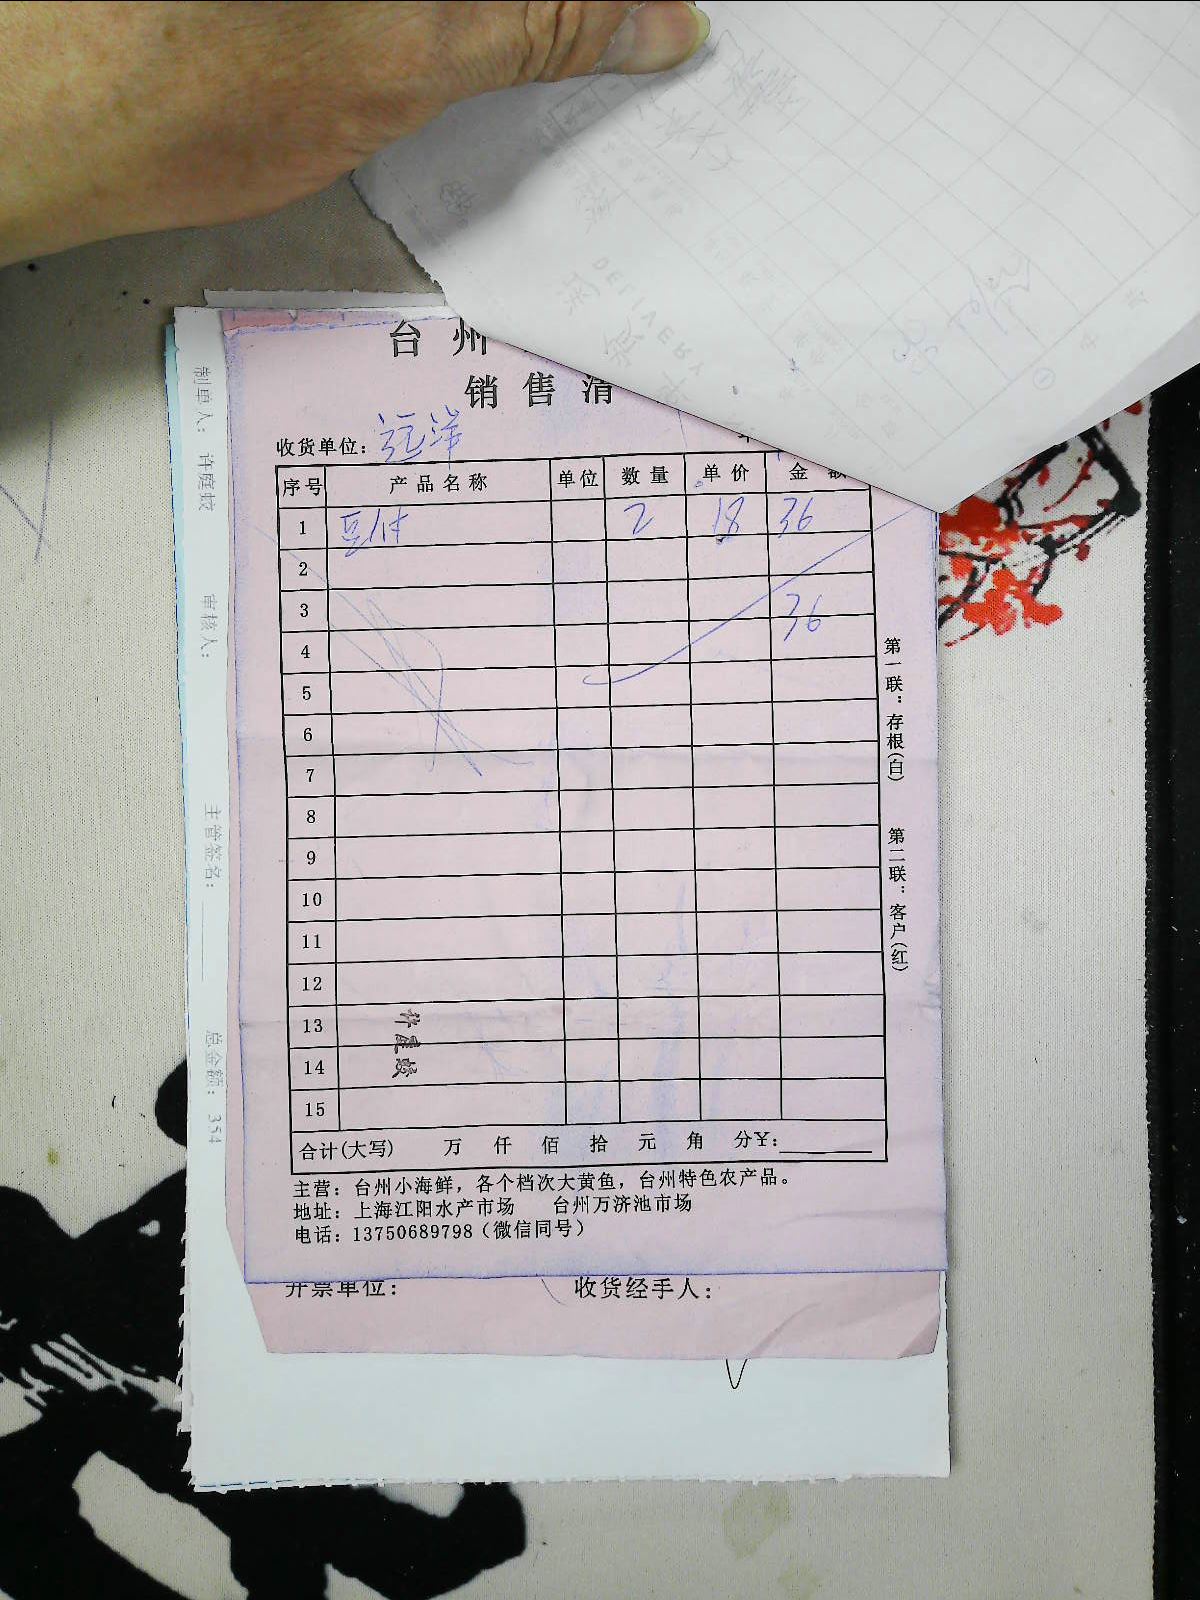 台州
销售清
收货单位：远洋
序号 产品名称 单位 数量 单价 金额
1 豆付 2 18 36
2
3 36
4
5
6
7
8
9
10
11
12
13
14
15
合计(大写) 万 仟 佰 拾 元 角 分¥：
主营：台州小海鲜，各个档次大黄鱼，台州特色农产品。
地址：上海江阳水产市场 台州万济池市场
电话：13750689798（微信同号）
开票单位： 收货经手人：
第一联：存根(白) 第二联：客户(红)
制单人： 许庭蛟 审核人： 主管签名： 总金额： 354